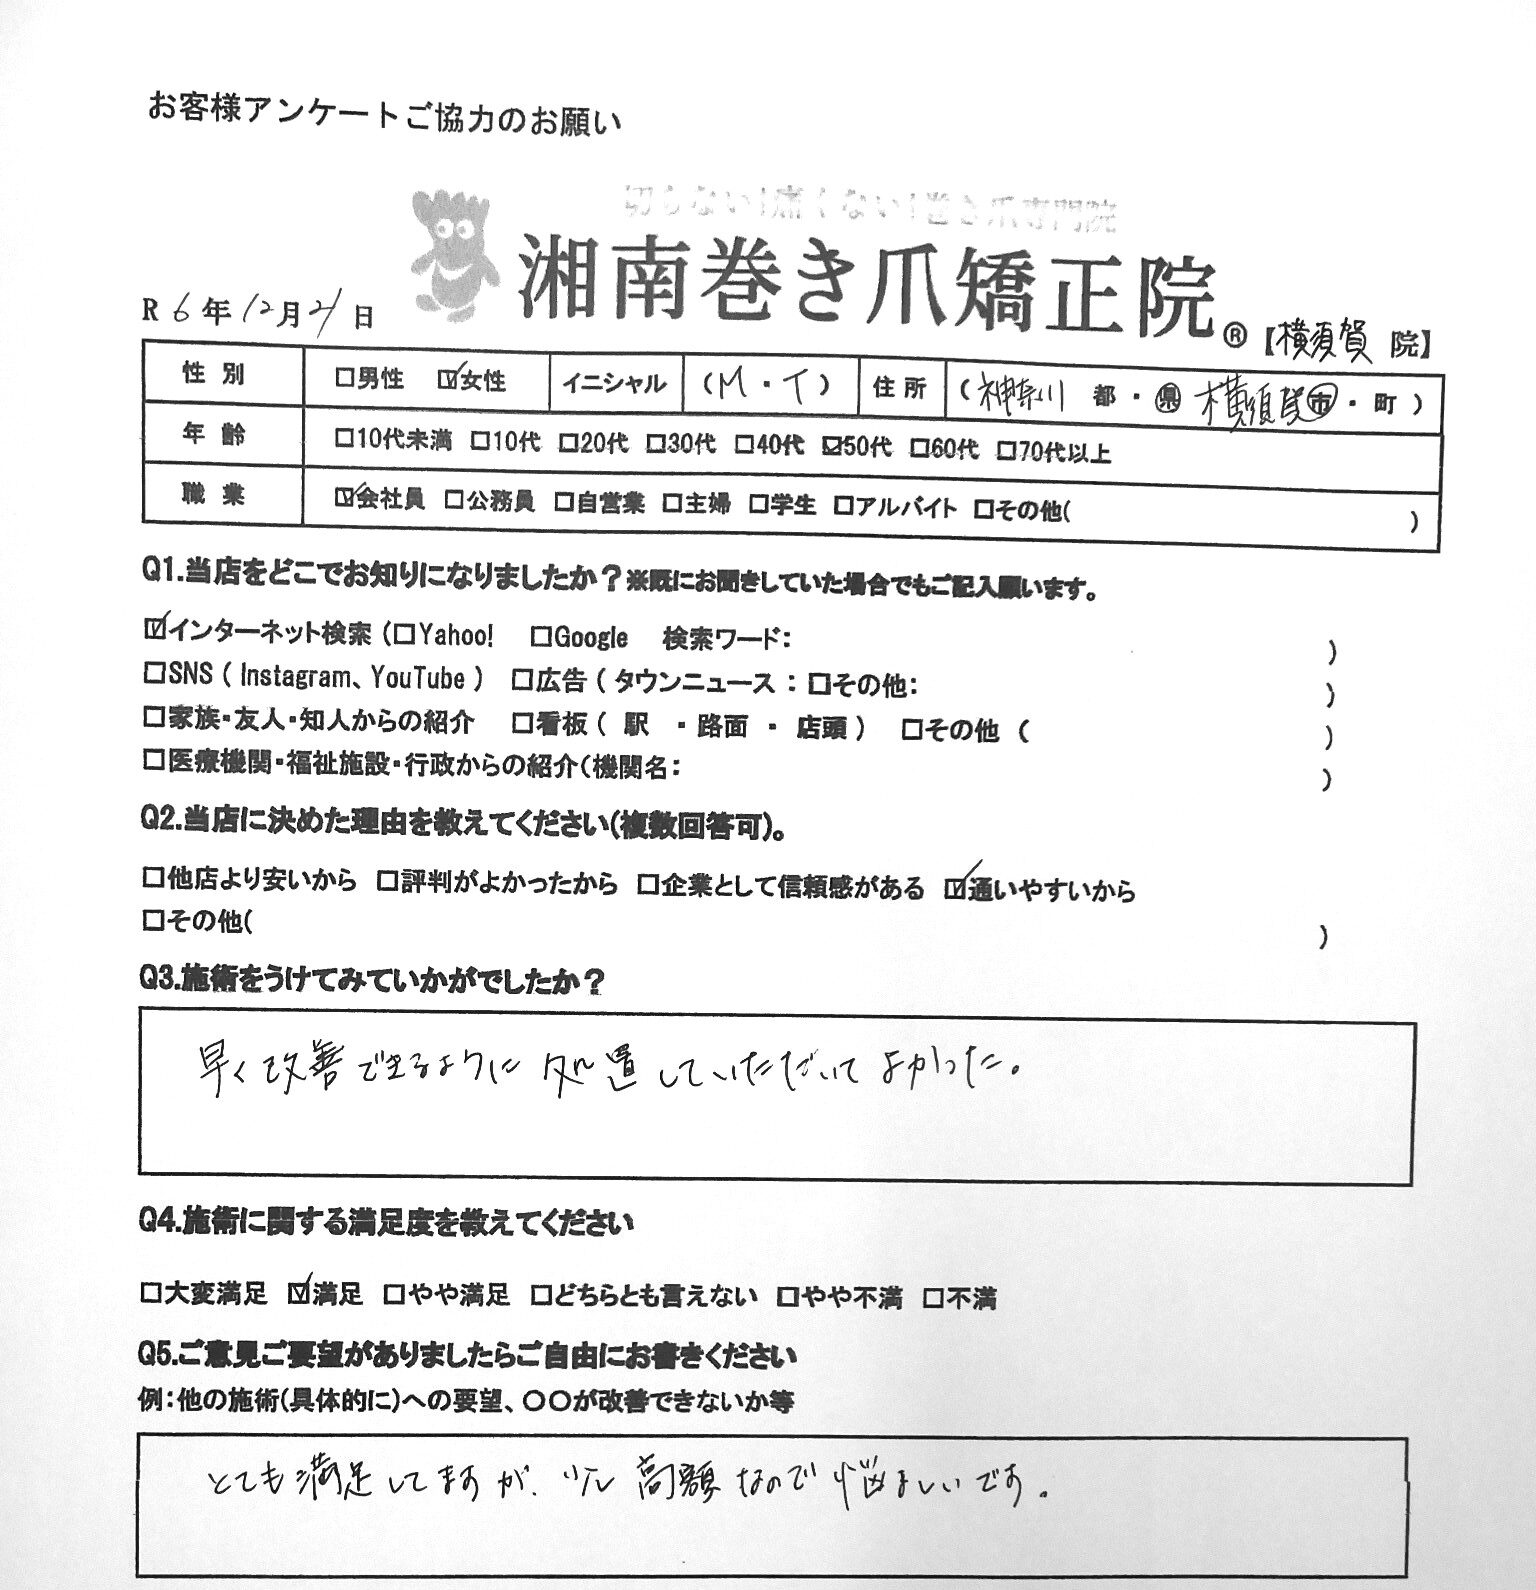 お客様アンケートご協力のお願い
切らない!痛くない!巻き爪専門院
湘南巻き爪矯正院®【横須賀 院】
R 6 年 12 月 21 日
性 別 □男性 ☑女性 イニシャル (M・T) 住 所 (神奈川 都・県 横須賀 市・町 )
年 齢 □10代未満 □10代 □20代 □30代 □40代 ☑50代 □60代 □70代以上
職 業 ☑会社員 □公務員 □自営業 □主婦 □学生 □アルバイト □その他( )
Q1.当店をどこでお知りになりましたか?※既にお聞きしていた場合でもご記入願います。
☑インターネット検索 (□Yahoo! □Google 検索ワード: )
□SNS ( Instagram、YouTube ) □広告 ( タウンニュース : □その他: )
□家族・友人・知人からの紹介 □看板 ( 駅 ・路面 ・ 店頭 ) □その他 ( )
□医療機関・福祉施設・行政からの紹介(機関名: )
Q2.当店に決めた理由を教えてください(複数回答可)。
□他店より安いから □評判がよかったから □企業として信頼感がある ☑通いやすいから
□その他( )
Q3.施術をうけてみていかがでしたか?
早く改善できるように処置していただいてよかった。
Q4.施術に関する満足度を教えてください
□大変満足 ☑満足 □やや満足 □どちらとも言えない □やや不満 □不満
Q5.ご意見ご要望がありましたらご自由にお書きください
例:他の施術(具体的に)への要望、〇〇が改善できないか等
とても満足してますが、少し高額なので悩ましいです。